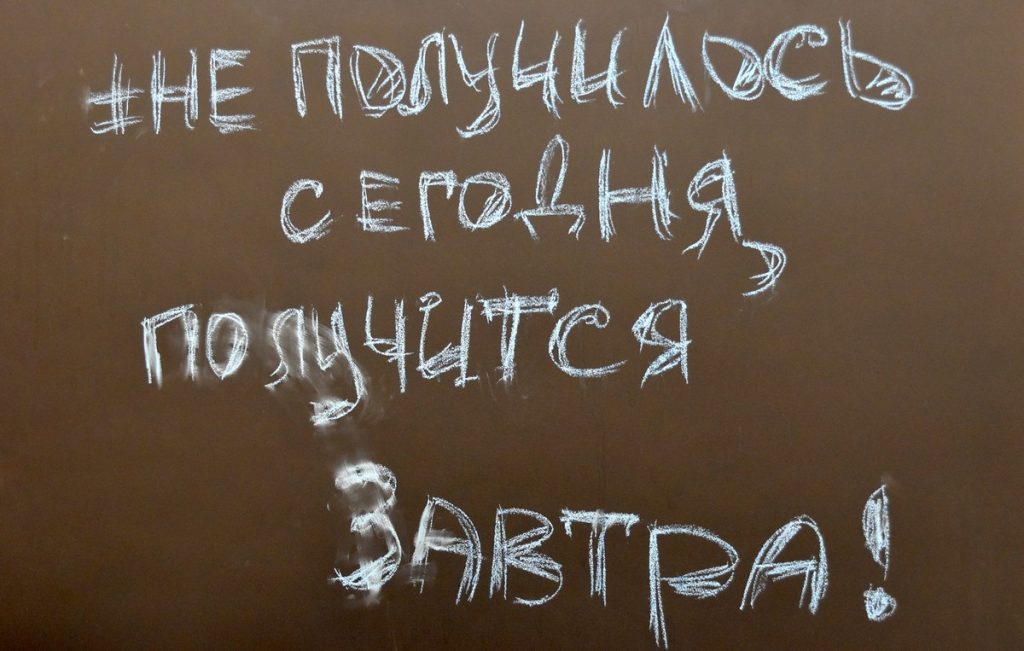 #НЕ ПОЛУЧИЛОСЬ
СЕГОДНЯ,
ПОЛУЧИТСЯ
ЗАВТРА!